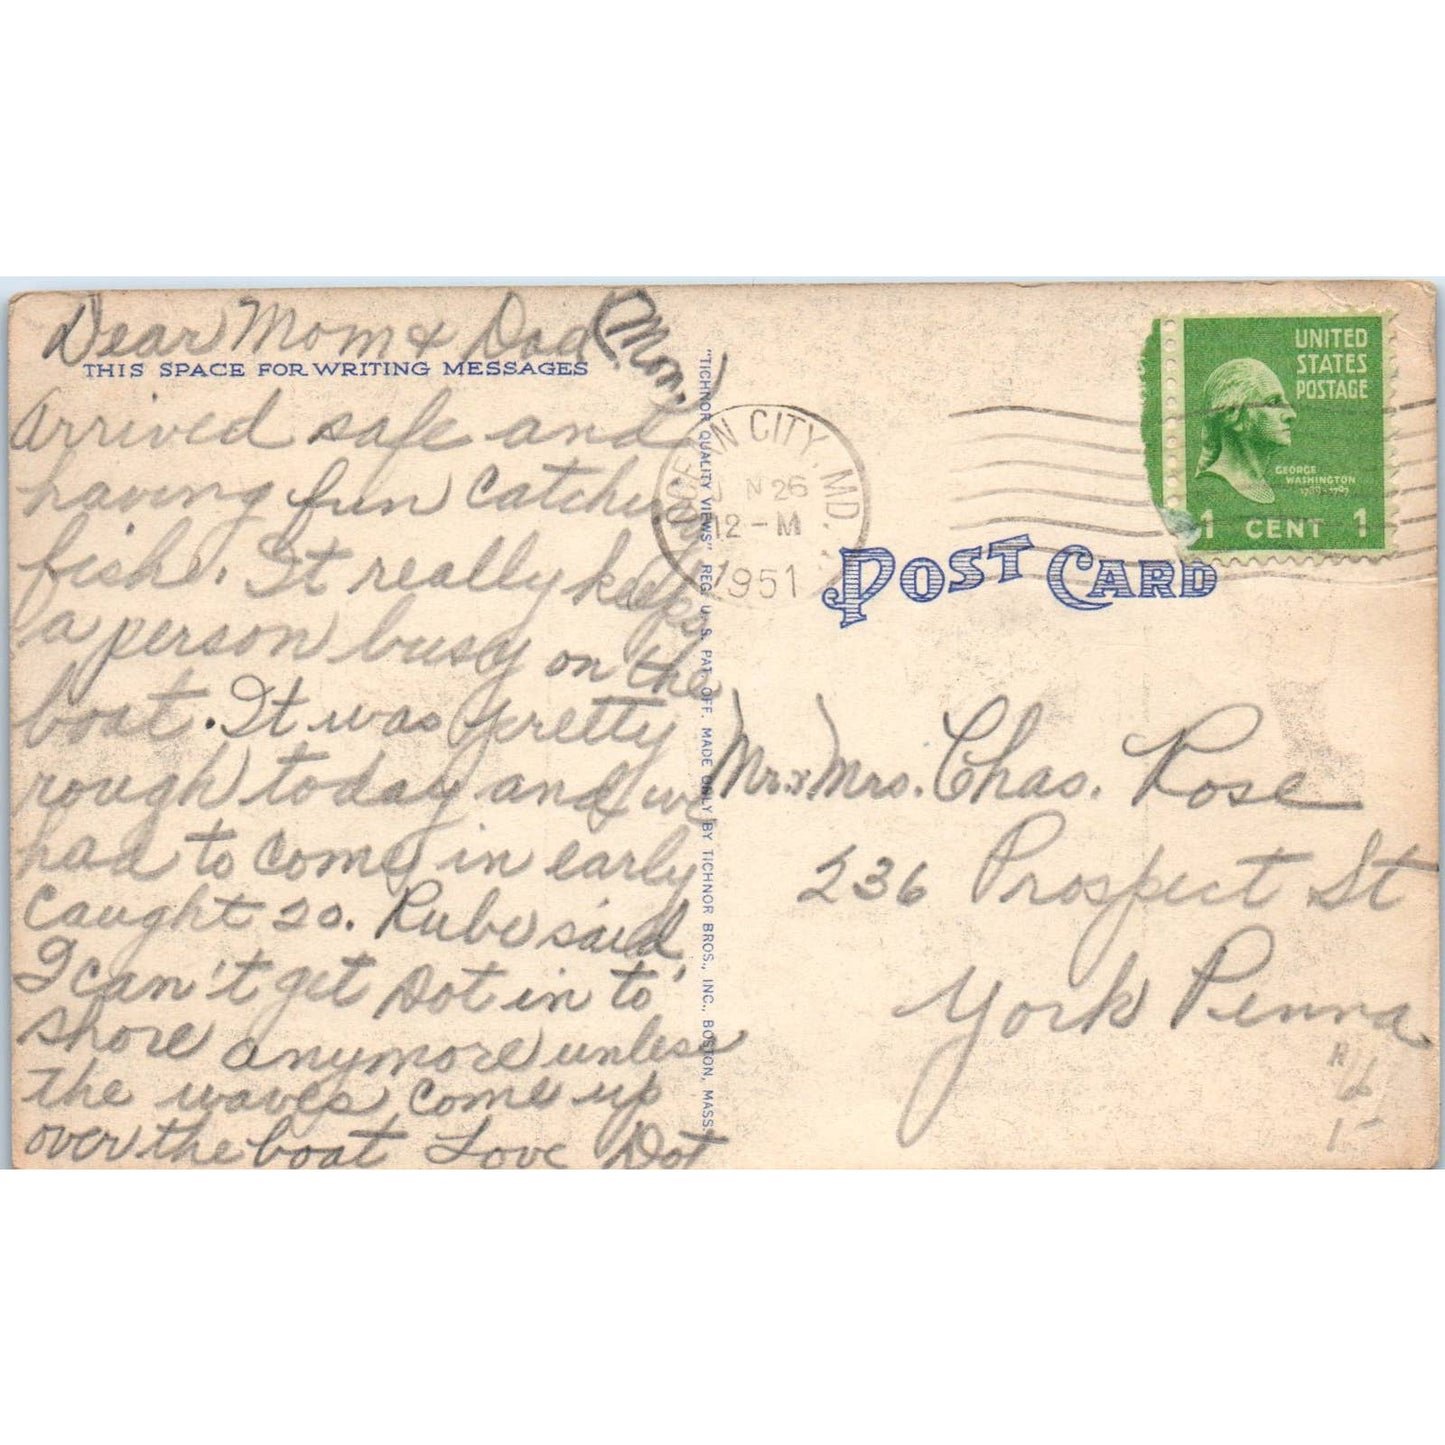 Dear Mom & Dad (Mon.)
THIS SPACE FOR WRITING MESSAGES
Arrived safe and
having fun catching
fishe. It really keeps
a person busy on the
boat. It was pretty
rough today and we
had to come in early
Caught 20. Rube said,
I can't get Dot in to
shore anymore unless
the waves come up
over the boat Love Dot
"TICHNOR QUALITY VIEWS" REG. U. S. PAT. OFF. MADE ONLY BY TICHNOR BROS., INC., BOSTON, MASS.
CITY, MD.
26
12-M
1951
UNITED
STATES
POSTAGE
GEORGE
WASHINGTON
1789-1797
1 CENT 1
POST CARD
Mr. & Mrs. Chas. Rose
236 Prospect St
York Penna.